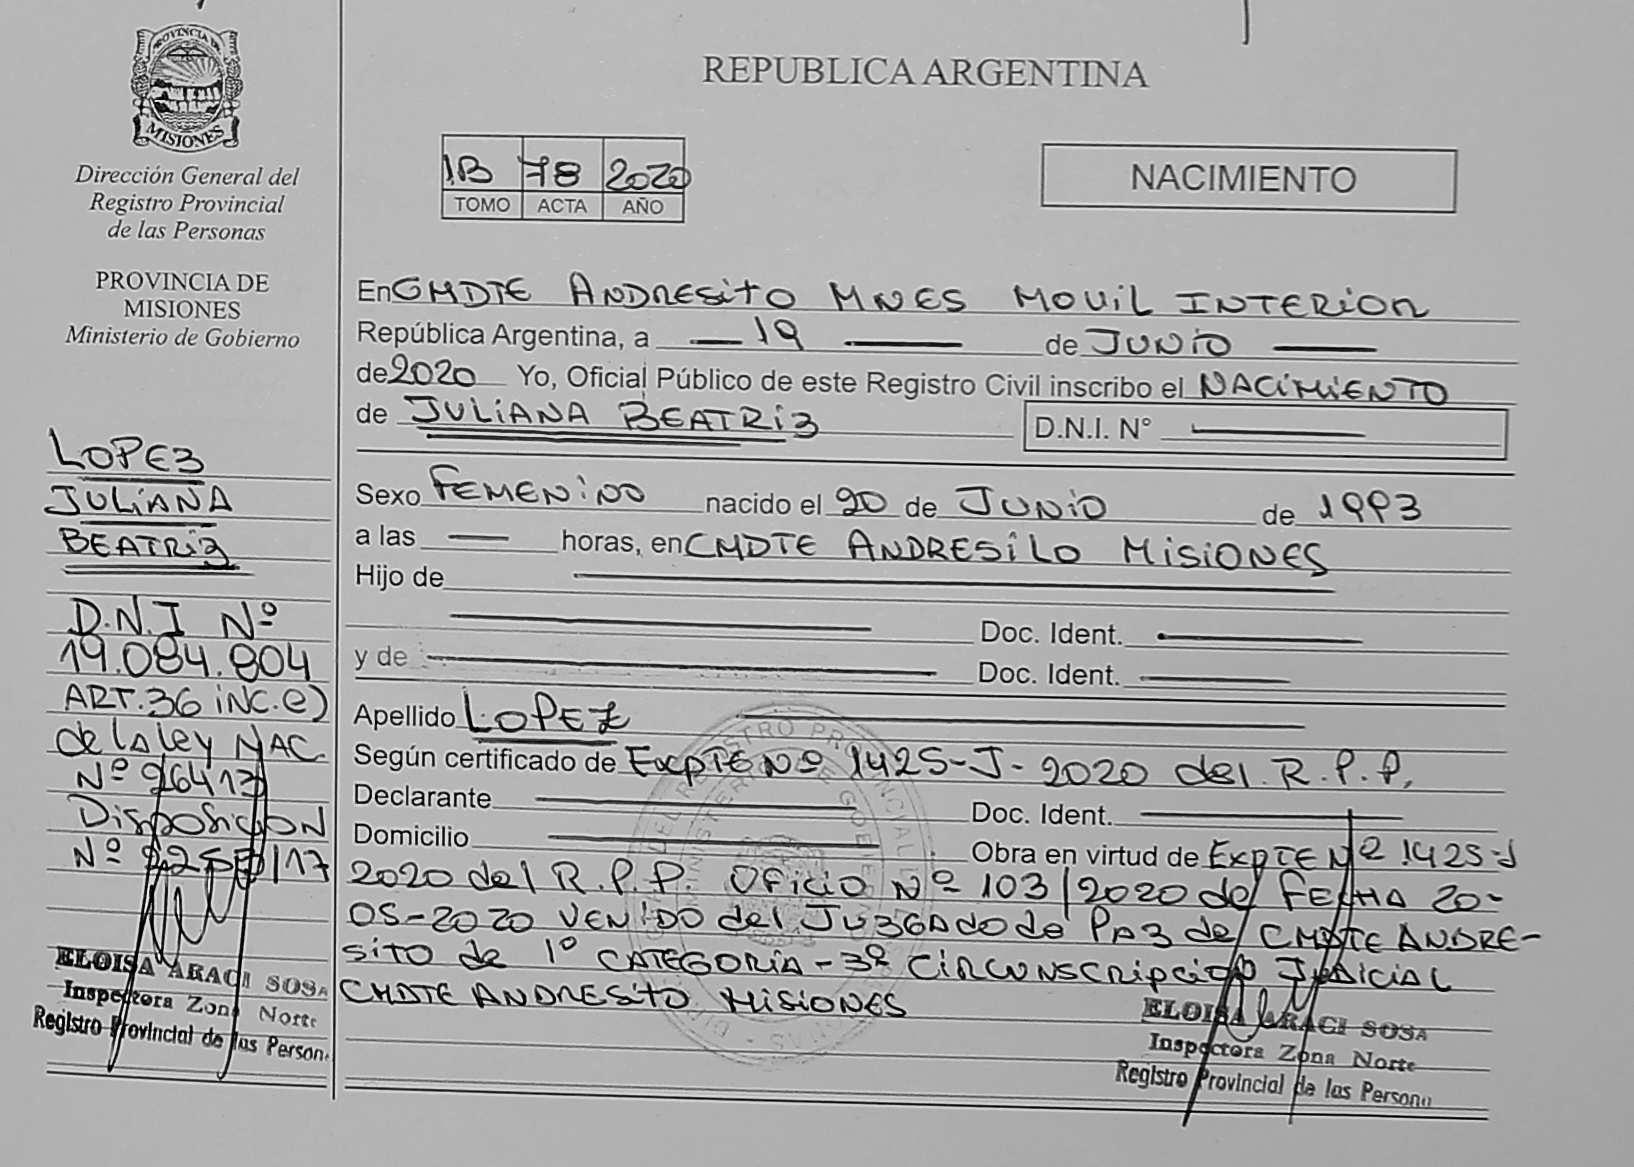 PROVINCIA DE
MISIONES
Dirección General del
Registro Provincial
de las Personas
PROVINCIA DE
MISIONES
Ministerio de Gobierno
LOPEZ
JULIANA
BEATRIZ
D.N.I Nº
19.084.804
ART.36 iNC.e)
de la ley NAC.
Nº 26413
DISPOSICION
Nº
ELOISA ARACI SOSA
Inspectora Zona Norte
Registro Provincial de las Person
REPUBLICA ARGENTINA
1B 78 2020
TOMO ACTA AÑO
NACIMIENTO
En CMDTE ANDRESiTO MNES MOVIL INTERIOR
República Argentina, a 19 de JUNIO
de 2020 Yo, Oficial Público de este Registro Civil inscribo el NACIMIENTO
de JULIANA BEATRIZ D.N.I. N°
Sexo FEMENiNO nacido el 20 de JUNIO de 1993
a las horas, en CMDTE ANDRESiLO MISIONES
Hijo de
Doc. Ident.
y de Doc. Ident.
Apellido LOPEZ
Según certificado de ExpTE Nº 1425-J-2020 del R.P.P.
Declarante Doc. Ident.
Domicilio Obra en virtud de ExpTE Nº 1425-J
2020 del R.P.P. OFICIO Nº 103/2020 de FECHA 20-
05-2020 VENIDO del JUZGADO de PAZ de CMDTE ANDRE-
SITO de 1º CATEGORIA-3º CIRCUNSCRIPCIÓN JUDICIAL
CMDTE ANDRESITO MISIONES
ELOISA ARACI SOSA
Inspectora Zona Norte
Registro Provincial de las Persona